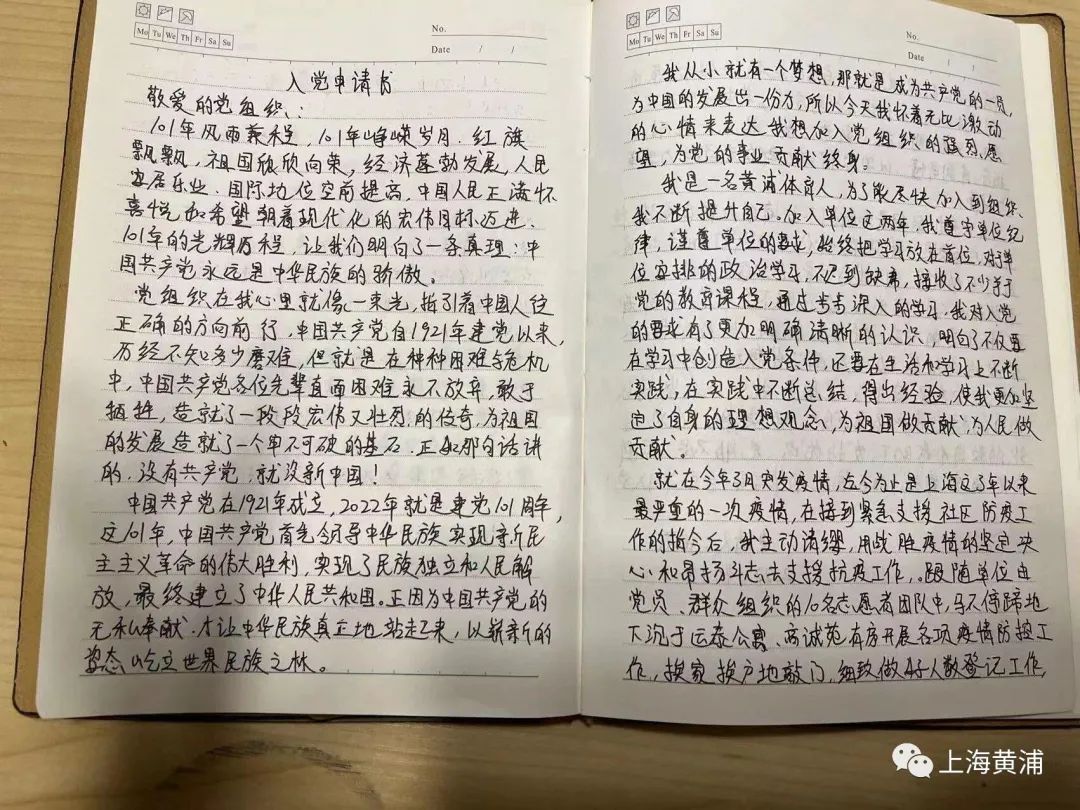 Mo Tu We Th Fr Sa Su
No.
Date / /
入党申请书
敬爱的党组织：
101年风雨兼程，101年峥嵘岁月。红旗
飘飘，祖国欣欣向荣，经济蓬勃发展，人民
安居乐业，国际地位空前提高，中国人民正满怀
喜悦和希望朝着现代化的宏伟目标迈进。
101年的光辉历程，让我们明白了一条真理：中
国共产党永远是中华民族的骄傲。
党组织在我心里就像一束光，指引着中国人往
正确的方向前行，中国共产党自1921年建党以来，
历经不知多少磨难，但就是在种种困难与危机
中，中国共产党各位先辈直面困难永不放弃，敢于
牺牲，造就了一段段宏伟又壮烈的传奇，为祖国
的发展造就了一个牢不可破的基石。正如那句话讲
的，没有共产党，就没新中国！
中国共产党在1921年成立，2022年就是建党101周年，
这101年，中国共产党首先领导中华民族实现新民
主主义革命的伟大胜利，实现了民族独立和人民解
放，最终建立了中华人民共和国。正因为中国共产党的
无私奉献，才让中华民族真正地站起了来，以崭新的
姿态屹立世界民族之林。
Mo Tu We Th Fr Sa Su
No.
Date / /
我从小就有一个梦想，那就是成为共产党的一员，
为中国的发展出一份力，所以今天我怀着无比激动
的心情来表达我想加入党组织的强烈愿
望，为党的事业贡献终身。
我是一名黄浦体育人，为了能尽快加入到组织，
我不断提升自己。加入单位这两年，我遵守单位纪
律，谨遵单位的要求，始终把学习放在首位，对于单
位安排的政治学习，不迟到缺席，接收了不少关于
党的教育课程，通过步步深入的学习，我对入党
的要求有了更加明确清晰的认识，明白了不仅要
在学习中创造入党条件，还要在生活和学习上不断
实践，在实践中不断总结，得出经验，使我更加坚
定了自身的理想观念，为祖国做贡献，为人民做
贡献。
就在今年3月突发疫情，迄今为止是上海这3年以来
最严重的一次疫情，在接到紧急支援社区防疫工
作的指令后，我主动请缨，用战胜疫情的坚定决
心和昂扬斗志去支援抗疫工作，跟随单位由
党员、群众组织的10名志愿者团队中，马不停蹄地
下沉于运泰公寓、商诚苑有房开展各项疫情防控工
作，挨家挨户地敲门，细致做好人数登记工作，
上海黄浦